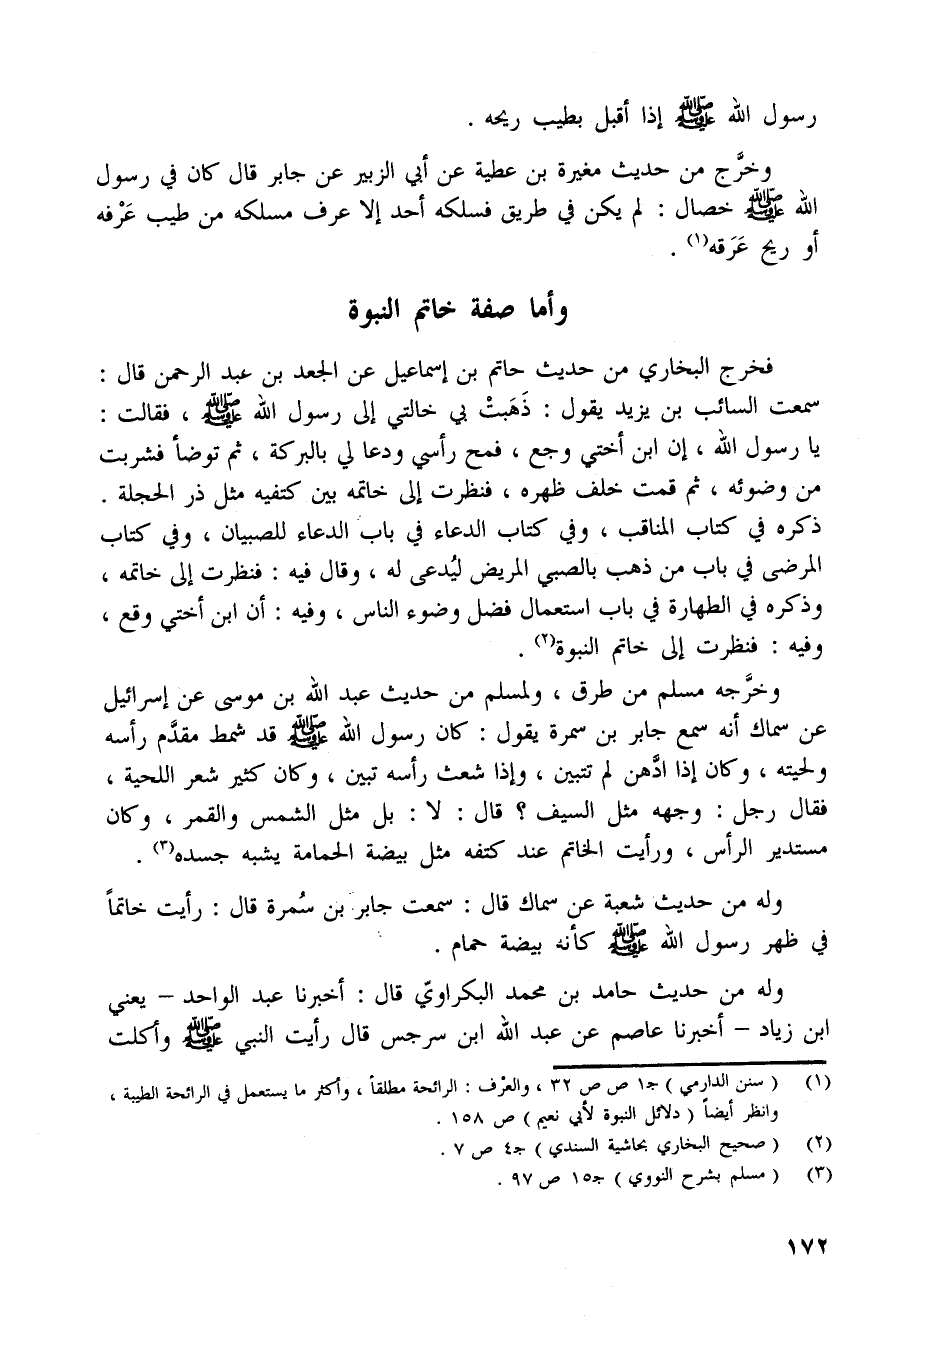 رسول الله ﷺ إذا أقبل بطيب ريحه .
وخرَّج من حديث مغيرة بن عطية عن أبي الزبير عن جابر قال كان في رسول
الله ﷺ خصال : لم يكن في طريق فسلكه أحد إلا عرف مسلكه من طيب عَرْفه
أو ريح عَرَقه(١) .
وأما صفة خاتم النبوة
فخرج البخاري من حديث حاتم بن إسماعيل عن الجعد بن عبد الرحمن قال :
سمعت السائب بن يزيد يقول : ذَهَبتْ بي خالتي إلى رسول الله ﷺ ، فقالت :
يا رسول الله ، إن ابن أختي وجع ، فمح رأسي ودعا لي بالبركة ، ثم توضأ فشربت
من وضوئه ، ثم قمت خلف ظهره ، فنظرت إلى خاتمه بين كتفيه مثل ذر الحجلة .
ذكره في كتاب المناقب ، وفي كتاب الدعاء في باب الدعاء للصبيان ، وفي كتاب
المرضى في باب من ذهب بالصبي المريض ليُدعى له ، وقال فيه : فنظرت إلى خاتمه ،
وذكره في الطهارة في باب استعمال فضل وضوء الناس ، وفيه : أن ابن أختي وقع ،
وفيه : فنظرت إلى خاتم النبوة(٢) .
وخرَّجه مسلم من طرق ، ولمسلم من حديث عبد الله بن موسى عن إسرائيل
عن سماك أنه سمع جابر بن سمرة يقول : كان رسول الله ﷺ قد شمط مقدَّم رأسه
ولحيته ، وكان إذا ادَّهن لم تتبين ، وإذا شعث رأسه تبين ، وكان كثير شعر اللحية ،
فقال رجل : وجهه مثل السيف ؟ قال : لا : بل مثل الشمس والقمر ، وكان
مستدير الرأس ، ورأيت الخاتم عند كتفه مثل بيضة الحمامة يشبه جسده(٣) .
وله من حديث شعبة عن سماك قال : سمعت جابر بن سُمرة قال : رأيت خاتماً
في ظهر رسول الله ﷺ كأنه بيضة حمام .
وله من حديث حامد بن محمد البكراويّ قال : أخبرنا عبد الواحد – يعني
ابن زياد – أخبرنا عاصم عن عبد الله ابن سرجس قال رأيت النبي ﷺ وأكلت
(١) ( سنن الدارمي ) جـ١ ص ص ٣٢ ، والعرْف : الرائحة مطلقاً ، وأكثر ما يستعمل في الرائحة الطيبة ،
وانظر أيضاً ( دلائل النبوة لأبي نعيم ) ص ١٥٨ .
(٢) ( صحيح البخاري بحاشية السندي ) جـ٤ ص ٧ .
(٣) ( مسلم بشرح النووي ) جـ١٥ ص ٩٧ .
١٧٢